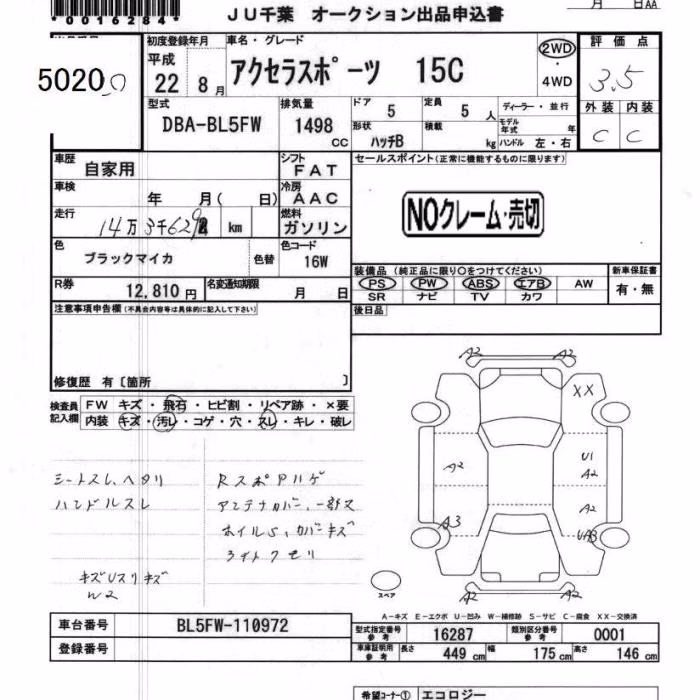 *0016284*
月 日AA
JU千葉 オークション出品申込書
5020
初度登録年月
平成
22 8 月
車名・グレード
アクセラスポーツ 15C
2WD
・
4WD
評価点
3.5
外装 内装
C C
型式
DBA-BL5FW
排気量
1498 CC
ドア 5
定員 5 人
形状 ハッチB
積載 kg
ディーラー・並行
モデル年式 年
ハンドル 左・右
車歴
自家用
シフト
FAT
セールスポイント(正常に機能するものに限ります)
車検
年 月( 日)
冷房
AAC
NOクレーム・売切
走行
14万3千629 km
燃料
ガソリン
色
ブラックマイカ
色替
色コード
16W
装備品(純正品に限り○をつけてください)
新車保証書
PS PW ABS エアB AW
有・無
SR ナビ TV カワ
R券
12,810 円
名変通知期限
月 日
後日品
注意事項申告欄(不具合内容等は具体的に記入して下さい)
修復歴 有〔箇所 〕
検査員記入欄
FW キズ・飛石・ヒビ割・リペア跡・×要
内装 キズ・汚レ・コゲ・穴・スレ・キレ・破レ
シートスレ、ヘタリ
ハンドルスレ
Rスポアハゲ
アンテナカバー、一部欠
ホイルS、カバーキズ
ライトクモリ
キズUスリキズ
W2
A2 A2
XX
A2
U1
A2
A2
A3
UA3
A2 A2
スペア
A-キズ E-エクボ U-凹み W-補修跡 S-サビ C-腐食 XX-交換済
車台番号
BL5FW-110972
型式指定番号
参考
16287
類別区分番号
参考
0001
登録番号
車庫証明用
参考
長さ 449 cm
幅 175 cm
高さ 146 cm
希望コーナー① エコロジー